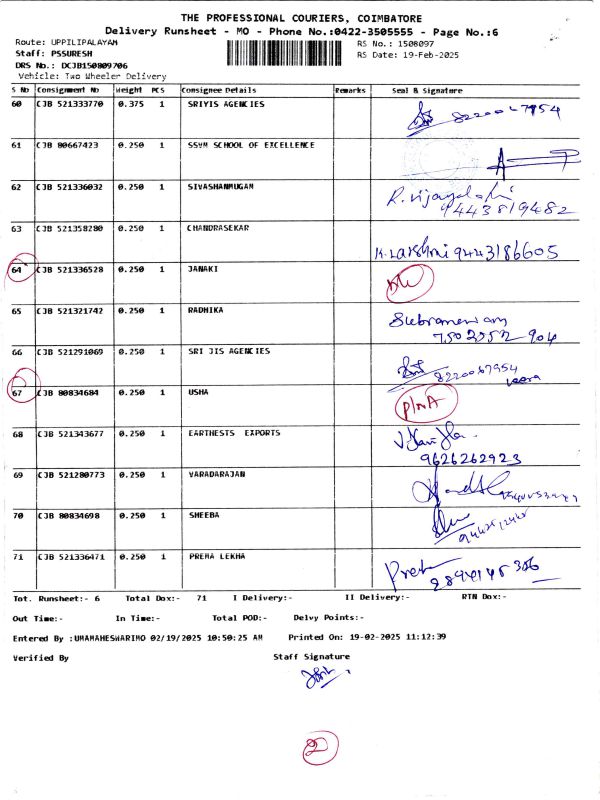 THE PROFESSIONAL COURIERS, COIMBATORE
Delivery Runsheet - MO - Phone No.:0422-3505555 - Page No.:6
Route: UPPILIPALAYAM
RS No.: 1508097
Staff: PSSURESH
RS Date: 19-Feb-2025
DRS No.: DCJB150809706
Vehicle: Two Wheeler Delivery
S No Consignment No Weight PCS Consignee Details Remarks Seal & Signature
60 CJB 521333770 0.375 1 SRIYIS AGENCIES
61 CJB 80667423 0.250 1 SSVM SCHOOL OF EXCELLENCE
62 CJB 521336032 0.250 1 SIVASHANMUGAM R. Vijayalakshmi
9443819482
63 CJB 521358280 0.250 1 CHANDRASEKAR K. Lakshmi 9443186605
64 CJB 521336528 0.250 1 JANAKI
65 CJB 521321742 0.250 1 RADHIKA
7502252 904
66 CJB 521291069 0.250 1 SRI JIS AGENCIES 8220067954
67 CJB 80834684 0.250 1 USHA
68 CJB 521343677 0.250 1 EARTHESTS EXPORTS
9626262923
69 CJB 521280773 0.250 1 VARADARAJAN
70 CJB 80834698 0.250 1 SHEEBA
71 CJB 521336471 0.250 1 PREMA LEKHA
Tot. Runsheet:- 6 Total Dox:- 71 I Delivery:- II Delivery:- RTN Dox:-
Out Time:- In Time:- Total POD:- Delvy Points:-
Entered By :UMAMAHESWARIMO 02/19/2025 10:50:25 AM Printed On: 19-02-2025 11:12:39
Verified By Staff Signature
2